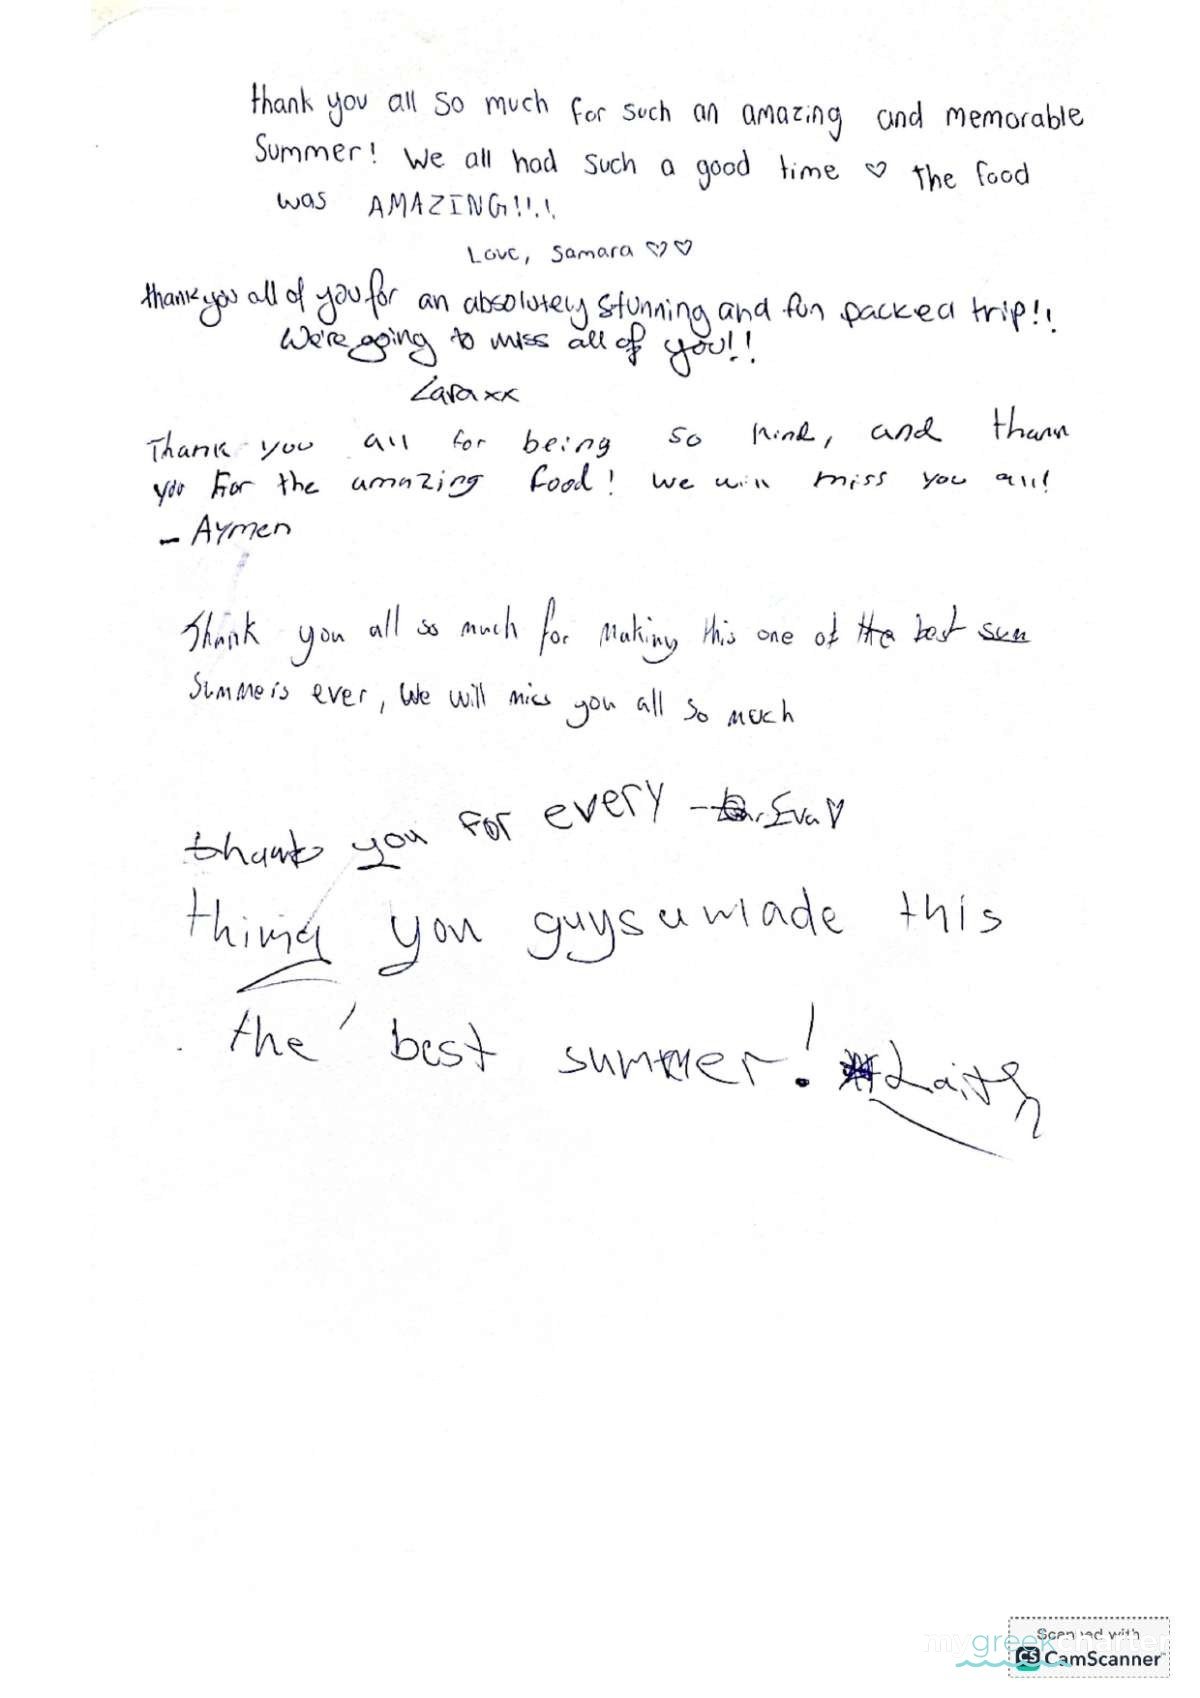 thank you all so much for such an amazing and memorable
Summer! We all had such a good time ♡ The food
was AMAZING!!!!
Love, Samara ♡♡
thank you all of you for an absolutely stunning and fun packed trip!!
We're going to miss all of you!!
Lara xx
Thank you all for being so kind, and thank
you For the amazing food! We will miss you all!
- Aymen
Thank you all so much for making this one of the best sum
summers ever, We will miss you all so much
- Eva ♡
thank you for every
thing you guys u made this
the best summer! Laith
Scanned with
mygreekcharter
CS CamScanner